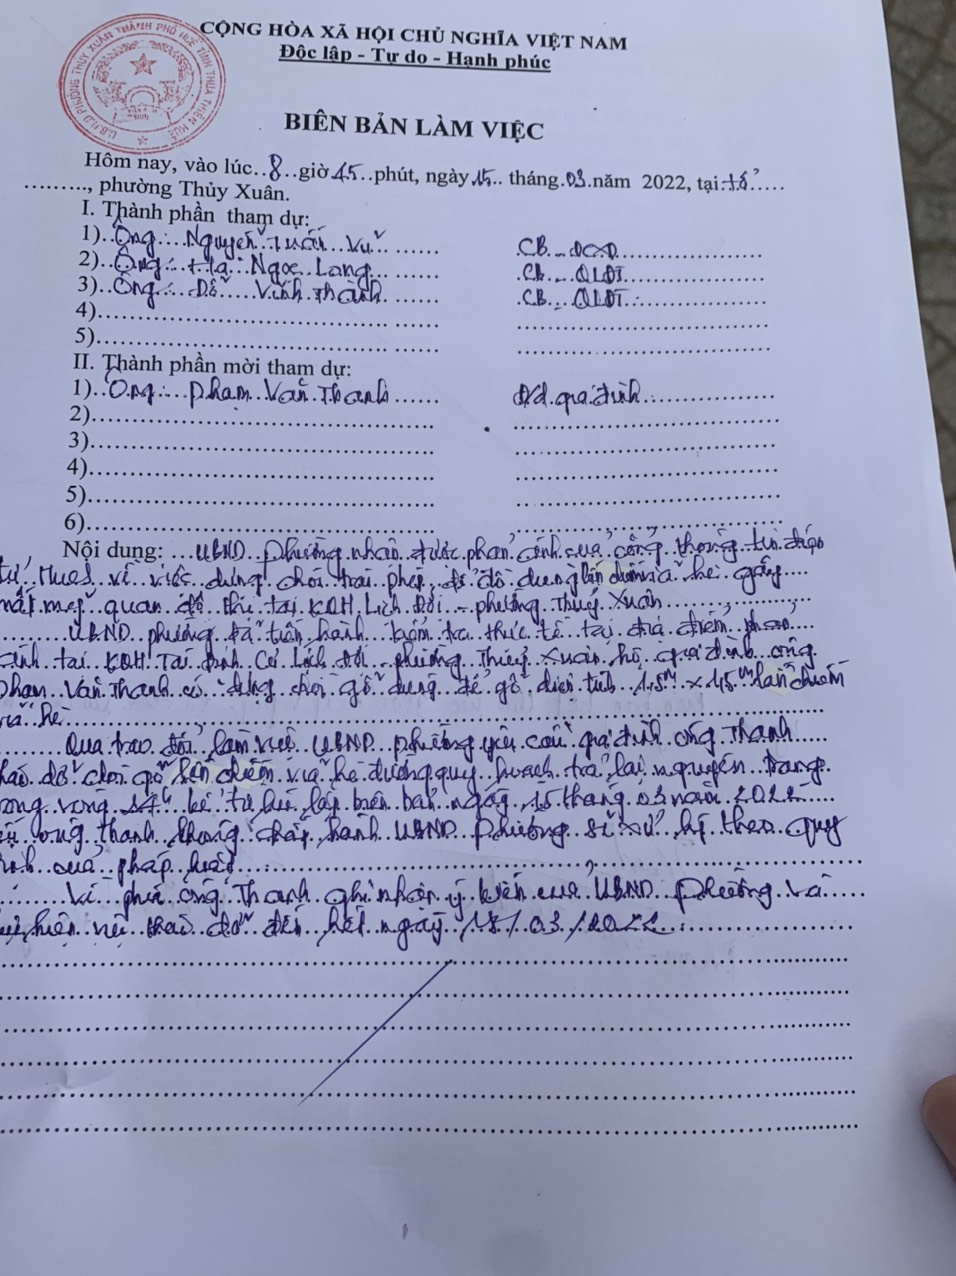 CỘNG HÒA XÃ HỘI CHỦ NGHĨA VIỆT NAM
Độc lập - Tự do - Hạnh phúc
U.B.N.D PHƯỜNG THỦY XUÂN THÀNH PHỐ HUẾ TỈNH THỪA THIÊN HUẾ
BIÊN BẢN LÀM VIỆC
Hôm nay, vào lúc..8..giờ 45..phút, ngày 15.. tháng.03.năm 2022, tại:.tổ.....
........., phường Thủy Xuân.
I. Thành phần tham dự:
1)..Ông:...Nguyễn..Tuấn..Vũ......... CB...ĐCXD
2)..Ông:..Hà..Ngọc..Lang......... CB...QLĐT
3)..Ông:...Đỗ....Vinh.Thành......... CB...QLĐT
4)
5)
II. Thành phần mời tham dự:
1)..Ông:...Phạm..Văn..Thanh...... Đ/d.gia.đình
2)
3)
4)
5)
6)
Nội dung: ...UBND..phường.nhận..được.phản..ánh.của..cổng..thông..tin
.Hues..về..việc..dựng..chòi.trái..phép..để.đồ.dùng lấn chiếm vỉa..hè..gây
mất.mỹ..quan..đô..thị..tại.KQH.Lịch.Đợi..-.phường.Thủy.Xuân
UBND..phường..đã..tiến..hành..kiểm..tra..thực..tế..tại..địa..điểm..phản
ánh..tại..KQH.Tái..định..cư..Lịch.đợi..-.phường..Thủy..Xuân.hộ..gia đình..ông
Phạm..Văn.Thanh.có..dựng..chòi..gỗ..dùng..để..gỗ..diện.tích..1,5m x 1,5m lấn chiếm
vỉa hè
Qua.trao..đổi..làm việc..UBND..phường yêu..cầu..gia đình..ông..Thanh
tháo..dỡ..chòi..gỗ..lấn chiếm..vỉa hè.đường quy..hoạch..trả..lại.nguyên..trạng
trong..vòng..24h..kể..từ.khi..lập..biên..bản..ngày..15.tháng.03.năm..2022
ông..thanh..không..chấp..hành..UBND..phường..sẽ.xử..lý..theo..quy
định..của..pháp..luật
Về..phía..ông..Thanh..ghi.nhận.ý.kiến.của..UBND..phường.và
thực.hiện..việc..tháo..dỡ..đến..hết..ngày../03./2022